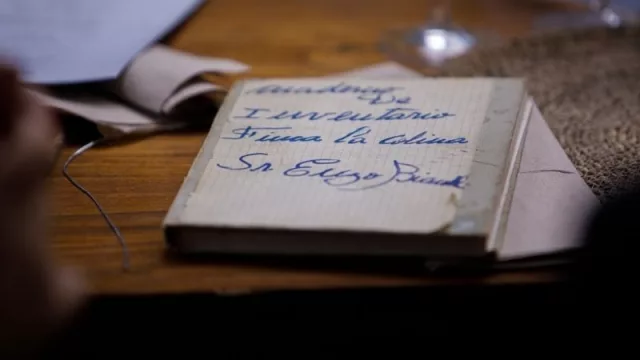 Cuaderno
De
Inventario
Finca la Colina
Sr. Enzo Bianchi